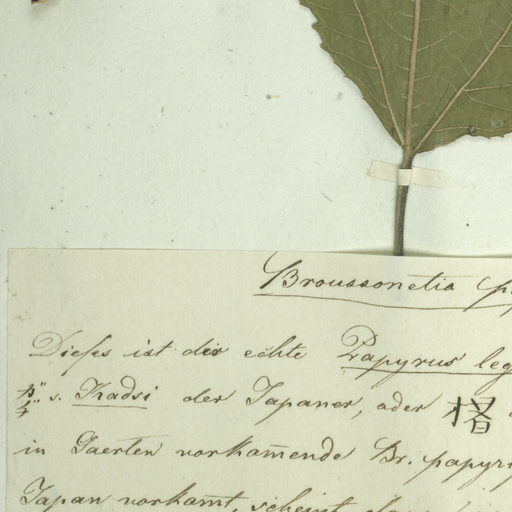 Broussonetia
Dieses ist die echte Papyrus leg
カヂ s. Kadsi der Japaner, oder 楮
in Gaerten vorkom̄ende Br. papyri
Japan vorkom̄t, scheint